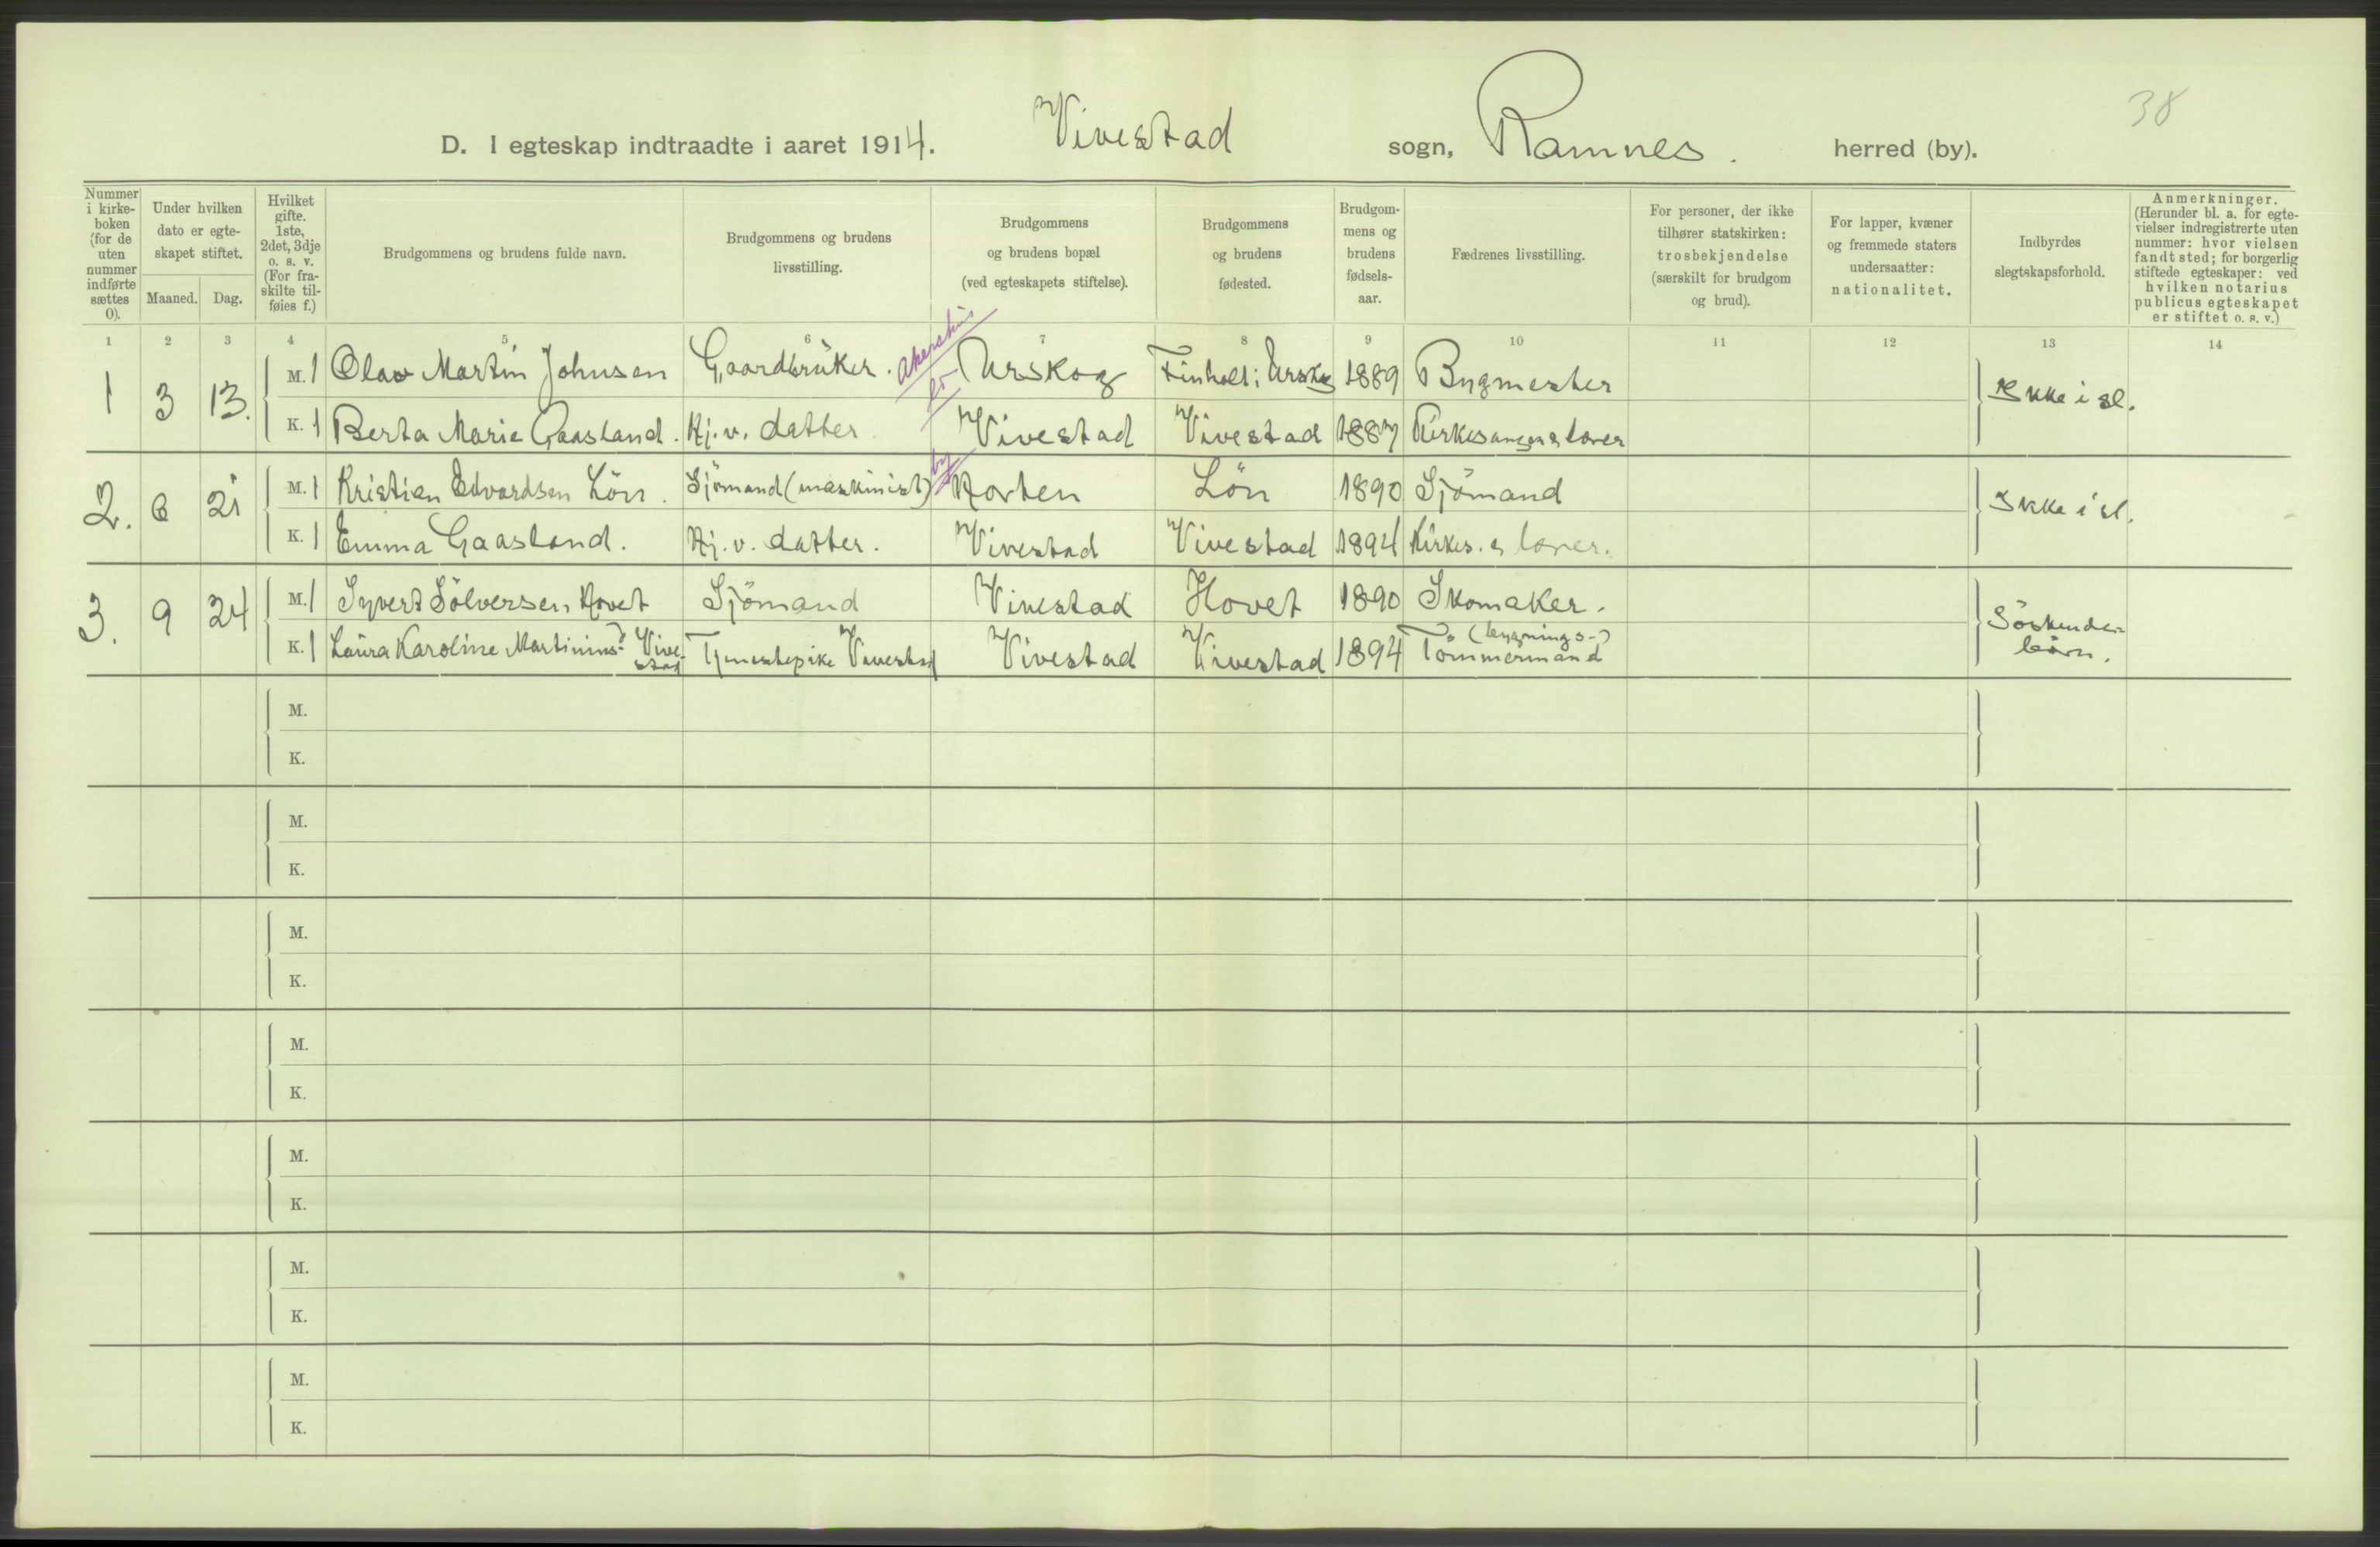 38
D. I egteskap indtraadte i aaret 1914. Vivestad sogn, Ramnes. herred (by).
Nummer i kirkeboken (for de uten nummer indførte sættes 0).
Under hvilken dato er egteskapet stiftet.
Maaned. Dag.
Hvilket gifte. 1ste, 2det, 3dje o. s. v. (For fraskilte tilføies f.)
Brudgommens og brudens fulde navn.
Brudgommens og brudens livsstilling.
Brudgommens og brudens bopæl (ved egteskapets stiftelse).
Brudgommens og brudens fødested.
Brudgommens og brudens fødselsaar.
Fædrenes livsstilling.
For personer, der ikke tilhører statskirken: trosbekjendelse (særskilt for brudgom og brud).
For lapper, kvæner og fremmede staters undersaatter: nationalitet.
Indbyrdes slegtskapsforhold.
Anmerkninger. (Herunder bl. a. for egtevielser indregistrerte uten nummer: hvor vielsen fandt sted; for borgerlig stiftede egteskaper: ved hvilken notarius publicus egteskapet er stiftet o. s. v.)
1 2 3 4 5 6 7 8 9 10 11 12 13 14
Akershus
1 3 13. M. 1 Olav Martin Johnsen Gaardbruker. Urskog Finholt i Urskog 1889 Bygmester Ikke i sl.
K. 1 Berta Marie Gaasland. Hj. v. datter. Vivestad Vivestad 1887 Kirkesanger & lærer
by
2. 6 21 M. 1 Kristian Edvardsen Lön. Sjömand (maskinist) Horten Lön 1890 Sjömand Ikke i sl.
K. 1 Emma Gaasland. Hj. v. datter. Vivestad Vivestad 1894 Kirkes. & lærer.
3. 9 24 M. 1 Syvert Sölversen Hovet Sjömand Vivestad Hovet 1890 Skomaker. Söskende-
börn.
K. 1 Laura Karoline Martinius Vivestad Tjenestepike Vivestad Vivestad Vivestad 1894 (bygnings-) Tömmermand
M.
K.
M.
K.
M.
K.
M.
K.
M.
K.
M.
K.
M.
K.